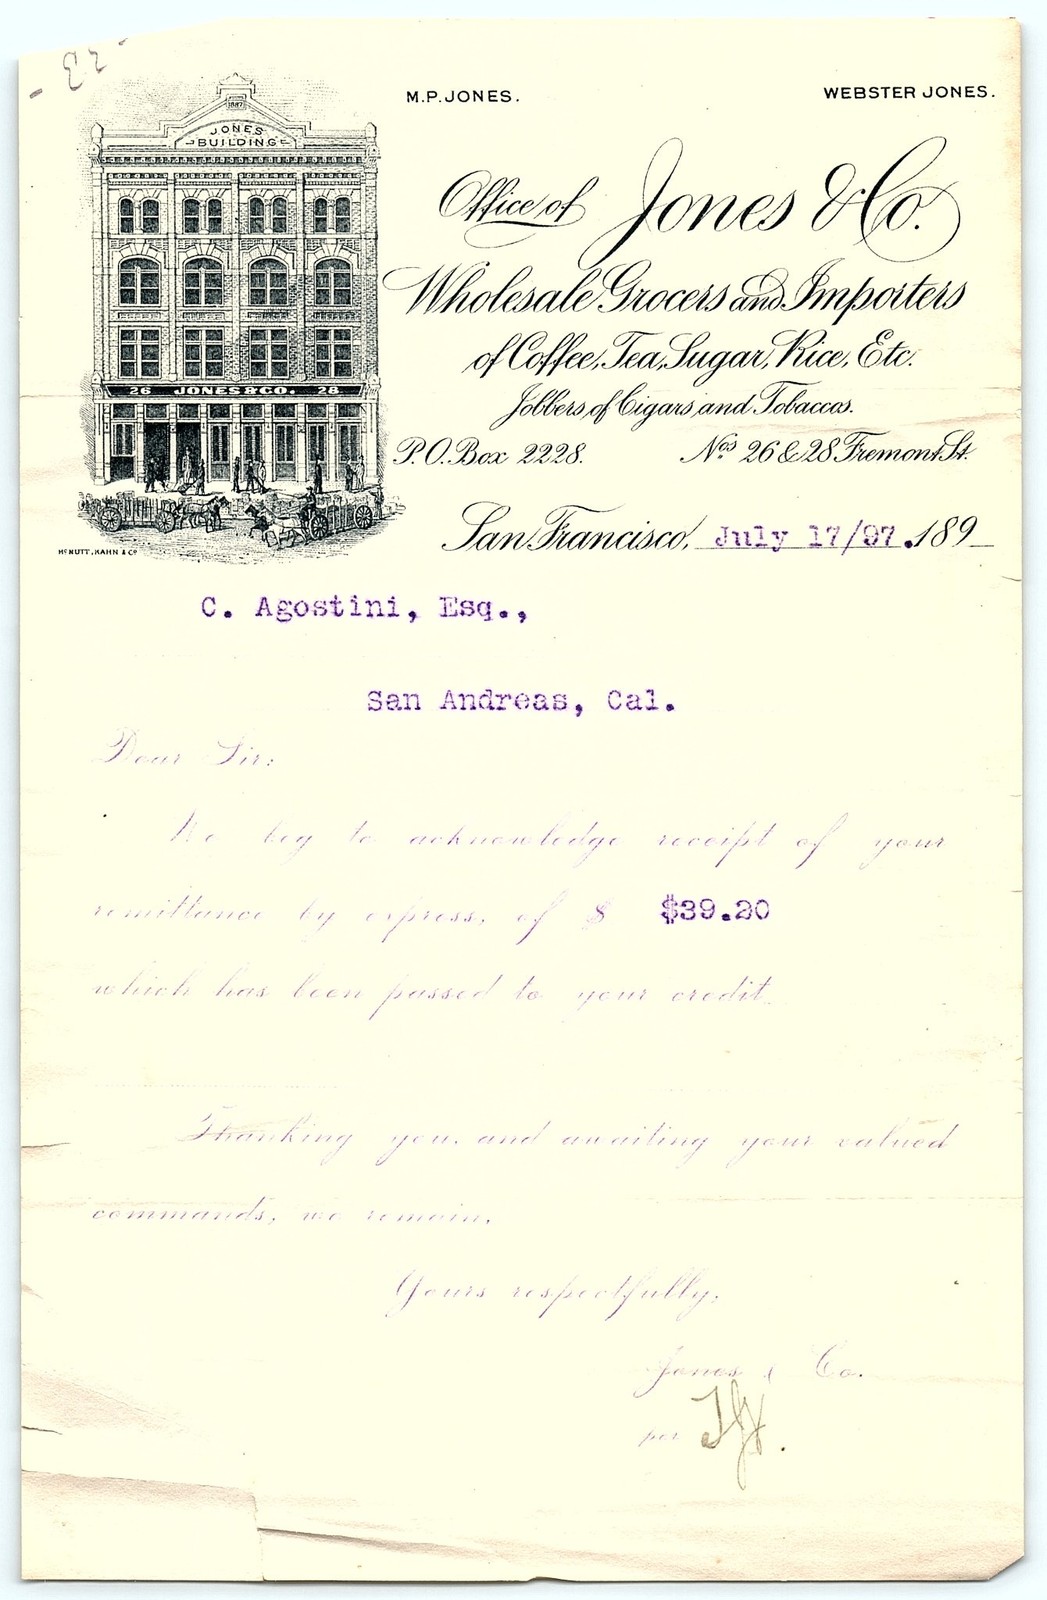 M.P. JONES.
WEBSTER JONES.
1887
JONES
BUILDING
26 JONES & CO. 28
Office of Jones & Co.
Wholesale Grocers and Importers
of Coffee, Tea, Sugar, Rice, Etc.
Jobbers of Cigars and Tobaccos.
P.O. Box 2228.
Nos 26 & 28 Fremont St.
San Francisco, July 17/97.189_
McNUTT, KAHN & Co
C. Agostini, Esq.,
San Andreas, Cal.
Dear Sir:
We beg to acknowledge receipt of your
remittance by express, of $ $39.20
which has been passed to your credit.
Thanking you, and awaiting your valued
commands, we remain,
Yours respectfully,
Jones & Co.
per